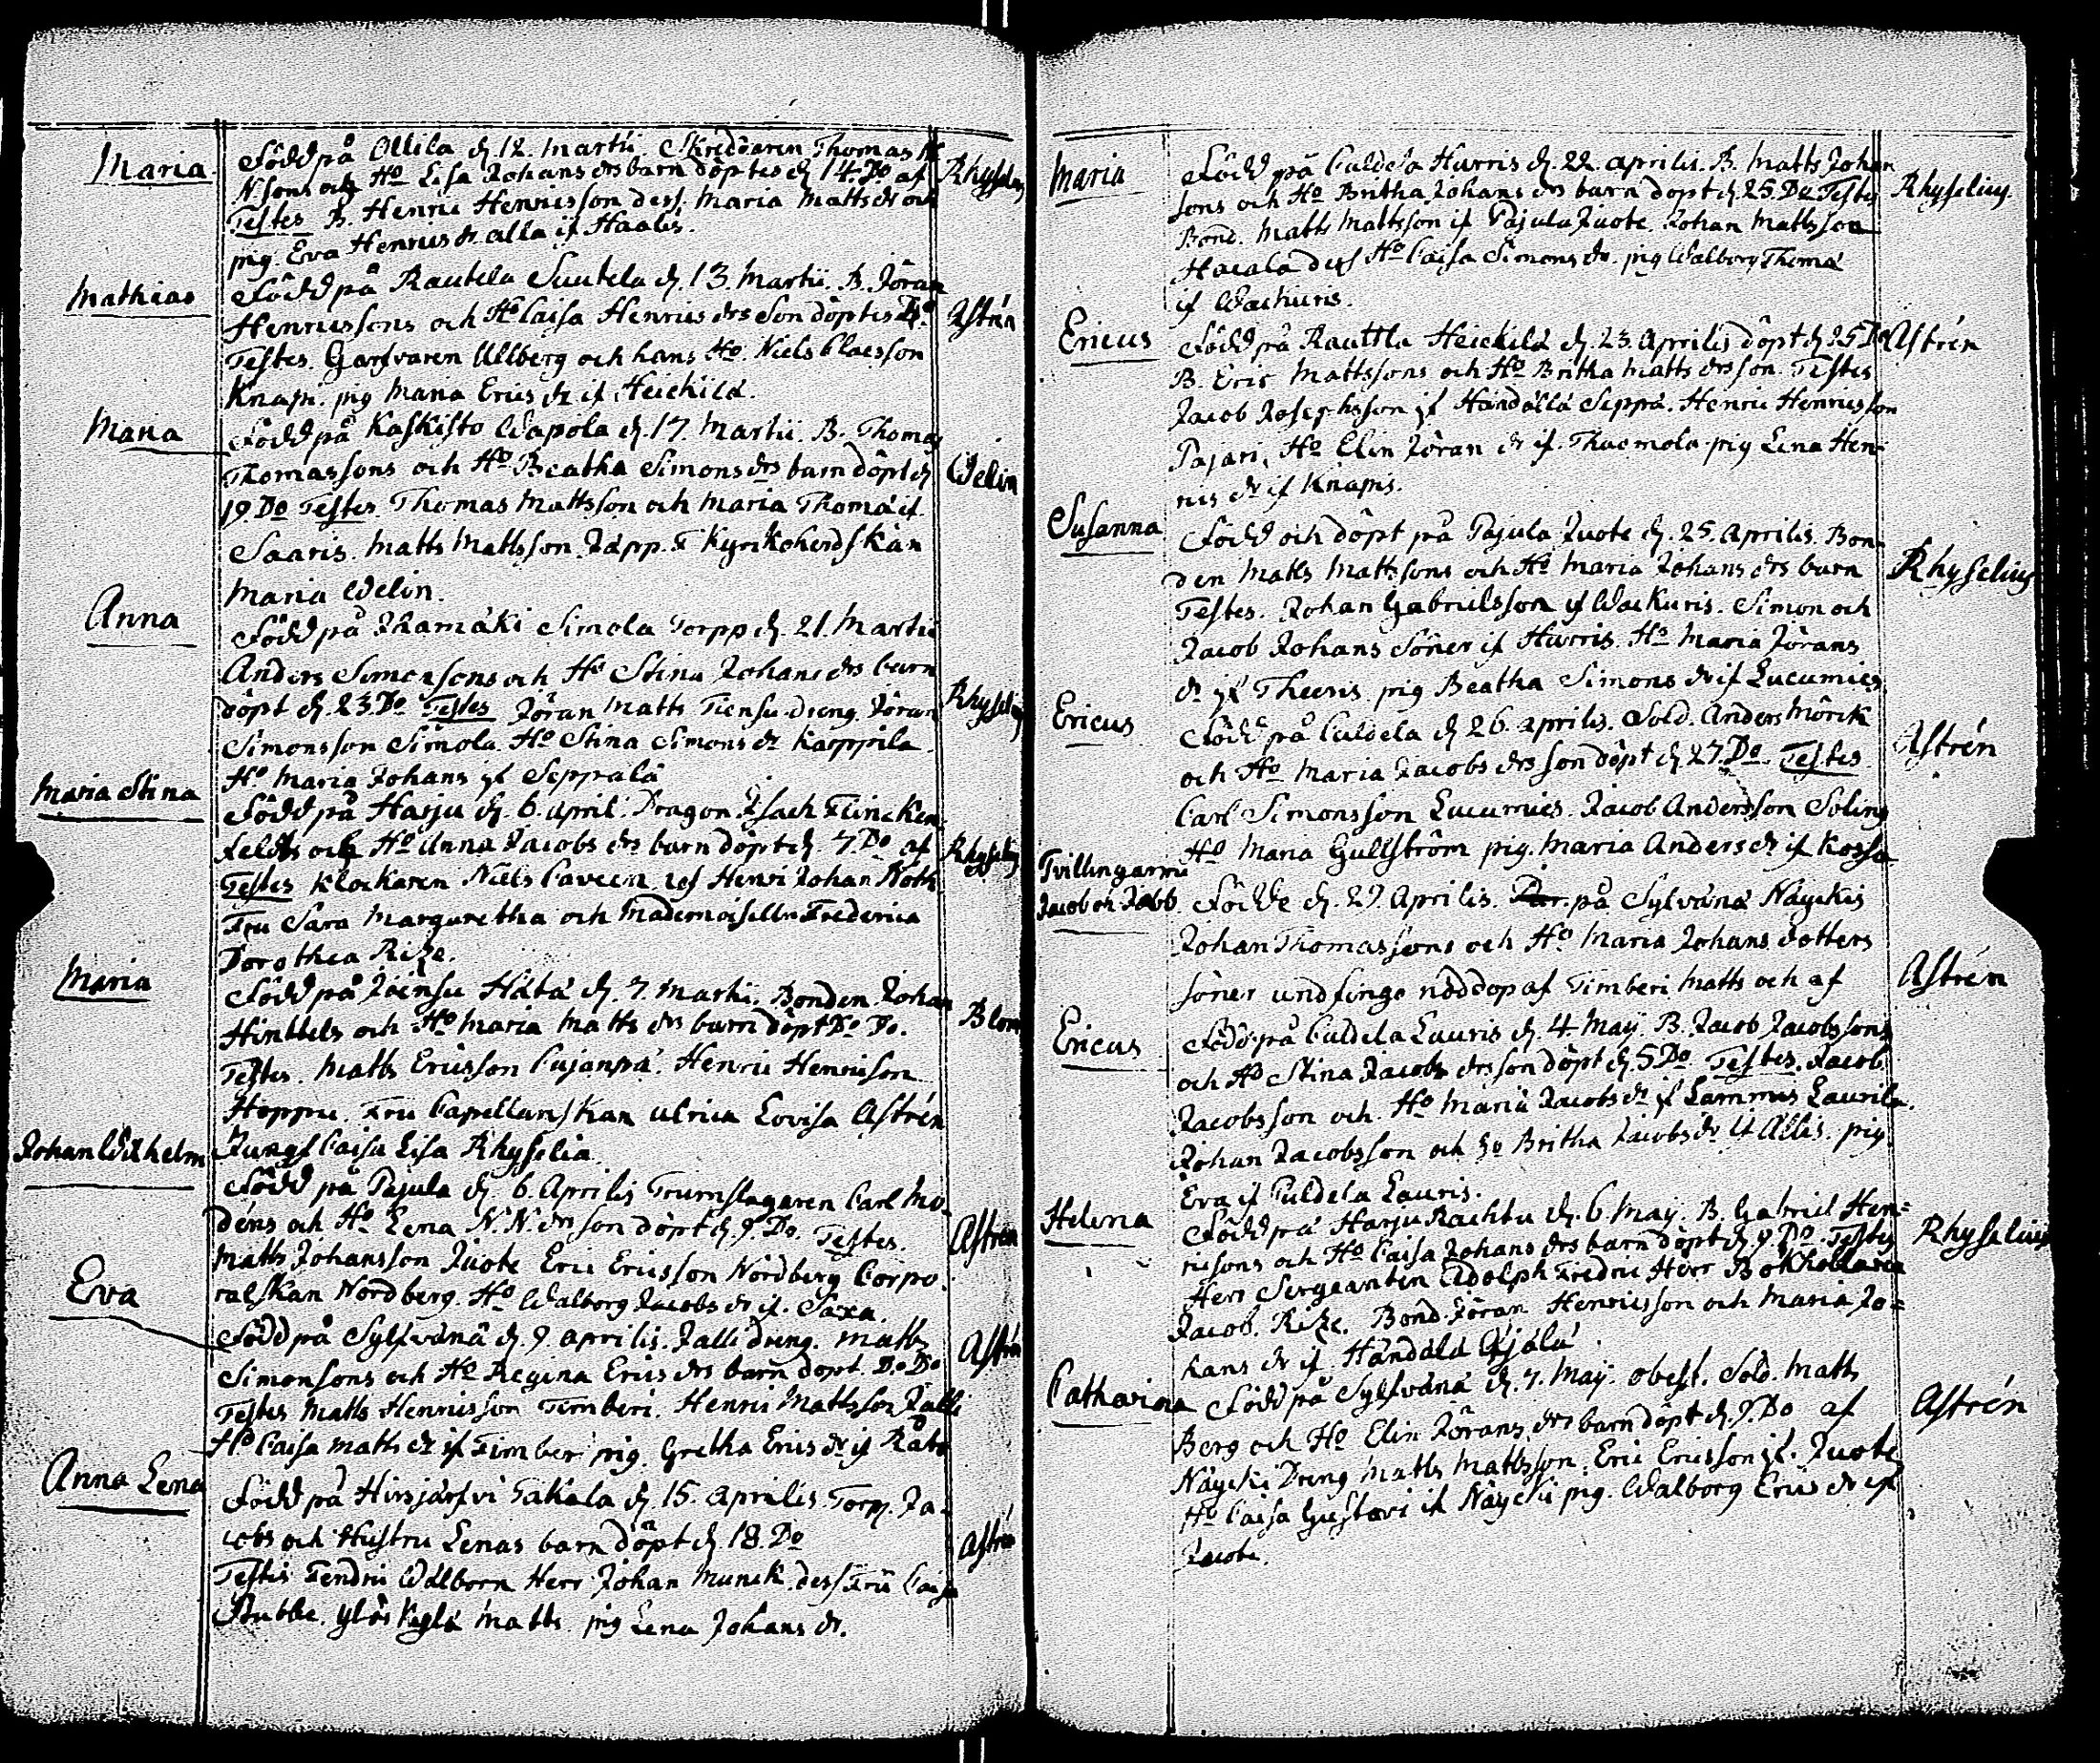 Maria
Född på Ollila d. 12. Martii. Skreddaren Thomas
Nsons och Ho Lisa Johans drs barn döptes d. 14 Do af
Rhyselius
Testes B. Henric Henricsson dess Maria Matts dr och
pig. Eva Henrics dr alla if Haalis.
Mathias
Född på Rautela Suutela d. 13. Martii. B. Jöran
Henricssons och Ho Caisa Henrics drs Son döptes Do
Astrén
Testes. Garfvaren Ullberg och hans Ho. Niels Claesson
Knapi. pig Maria Erics dr if Heickilä.
Maria
Född på Kaskisto Wapola d. 17. Martii. B. Thomas
Thomassons och Ho Beatha Simons drs barn döpt d.
Welin
19. Do Testes Thomas Mattsson och Maria Thomä if
Saaris. Matts Mattsson Japp. F Kyrkoherdskan
Maria Welin.
Anna
Född på Ihamäki Simola Torpp d. 21. Martii
Anders Simonsons och Ho Stina Johans drs barn
döpt d. 23. Do Testes Jöran Matts Tiensu dreng Jöran
Rhyselius
Simonsson Simola. Ho Stina Simons dr Karppila
Ho Maria Johans if Seppälä
Maria Stina
Född på Harju d. 6. April. Dragon Isach Flincken
feldts och Ho Anna Jacobs drs barn döpt d. 7 Do af
Rhyselius
Testes Klockaren Niels Caveen, Henr Johan Roth
Fru Sara Margaretha och Mademoiselln Frederica
Dorothea Rize.
Maria
Född på Joensu Hätä d. 7. Martii. Bonden Johan
Hinttels och Ho Maria Matts drs barn döpt Do Do.
Blom
Testes. Matts Ericsson Cujanpä. Henric Henricson
Hoppu. Fru Capellanskan Ulrica Lovisa Astrén
Jungf Caisa Lisa Rhyselia.
Johan Wilhelm
Född på Pajula d. 6. Aprilis Trumslagaren Carl Mo-
déns och Ho Lena N. N. drs son döpt d. 9. Do. Testes.
Astrén
Matts Johansson Juote Eric Ericsson Nordberg Corpo-
ralskan Nordberg. Ho Walborg Jacobs dr if. Saxa.
Eva
Född på Sylfvänä d. 9. aprilis. Jalli dreng. Matts
Astrén
Simonsons och Ho Regina Erics drs barn döpt. Do Do
Testes Matts Henricsson Timberi. Henric Mattsson Jalli
Ho Caisa Matts dr if Timberi pig. Gretha Erics dr if
Anna Lena
Född på Hirsjärfvi Takala d. 15. Aprilis Torp. Ja-
cobs och Hustru Lenas barn döpt d. 18. Do
Astrén
Testis Fendric Wälborn Herr Johan Munck dess Fru Caisa
Stubbe. Matts. pig Lena Johans dr.
Maria
Född på Culdela Hurris d. 22 aprilis. B. Matts Johan
sons och Ho Britha Johans drs barn döpt d. 25. Do Testes
Rhyselius.
Bond. Matts Mattsson if Pajula Juote. Johan Mattsson
Hacala dess Ho Caisa Simons dr. pig Walborg Thomä
if Wackuris.
Ericus
Född på Rauttla Heickilä d. 23. Aprilis döpt d. 25 Do
Astrén
B. Eric Mattssons och Ho Britha Matts drs son. Testes
Jacob Josephsson if Händälä Seppä. Henric Henricsson
Pajari, Ho Elin Jöran dr if. Thuomola pig Lena Hen-
rics dr if Knapis.
Susanna
Född och döpt på Pajula Juote d. 25. aprilis. Bon-
den Matts Mattssons och Ho Maria Johans drs barn
Rhyselius
Testes. Johan Gabrielsson if Wackuris. Simon och
Jacob Johans Söner if Hurris. Ho Maria Jörans
dr if Theeris pig Beatha Simons dr if Lucumies
Ericus
Född på Culdela d. 26. aprilis. Sold. Anders Mörck
Astrén
och Ho Maria Jacobs drs son döpt d. 27. Do. Testes
Carl Simonsson Lucumies. Jacob Andersson Soling
Ho Maria Gullström pig. Maria Anders dr if Kossa
Tvillingarne
Jacob och Jobb
Födde d. 29. Aprilis. på Sylvänä Näyckis
Johan Thomassons och Ho Maria Johans dotters
söner undfingo nöddop af Timberi Matts och af
Astrén
Ericus
Född på Culdela Lauris d. 4. May. B. Jacob Jacobssons
och Ho Stina Jacobs drs son döpt d. 5 Do Testes. Jacob
Jacobsson och Ho Maria Jacobs dr if Lammis Laurila.
Johan Jacobsson och Ho Britha Jacobs dr if Allis. pig
Eva if Culdela Lauris.
Helena
Född på Harju Rachtu d. 6 May. B. Gabriel Hen-
ricsons och Ho Caisa Johans drs barn döpt d. 9 Do. Testes
Rhyselius
Herr Sergeanten Adolph Fredric Herr Bokhollaren
Jacob. Rize. Bond. Jöran Henricsson och Maria Jo-
hans dr if Händälä Äijälä.
Catharina
Född på Sylfvänä d. 7. May. obest. Sold. Matts
Astrén
Berg och Ho Elin Jörans drs barn döpt d. 9. Do af
Näycki Dreng Matts Mattsson. Eric Ericsson if. Juote
Ho Caisa Gustavi if Näycki pig. Walborg Erics dr if
Juote.